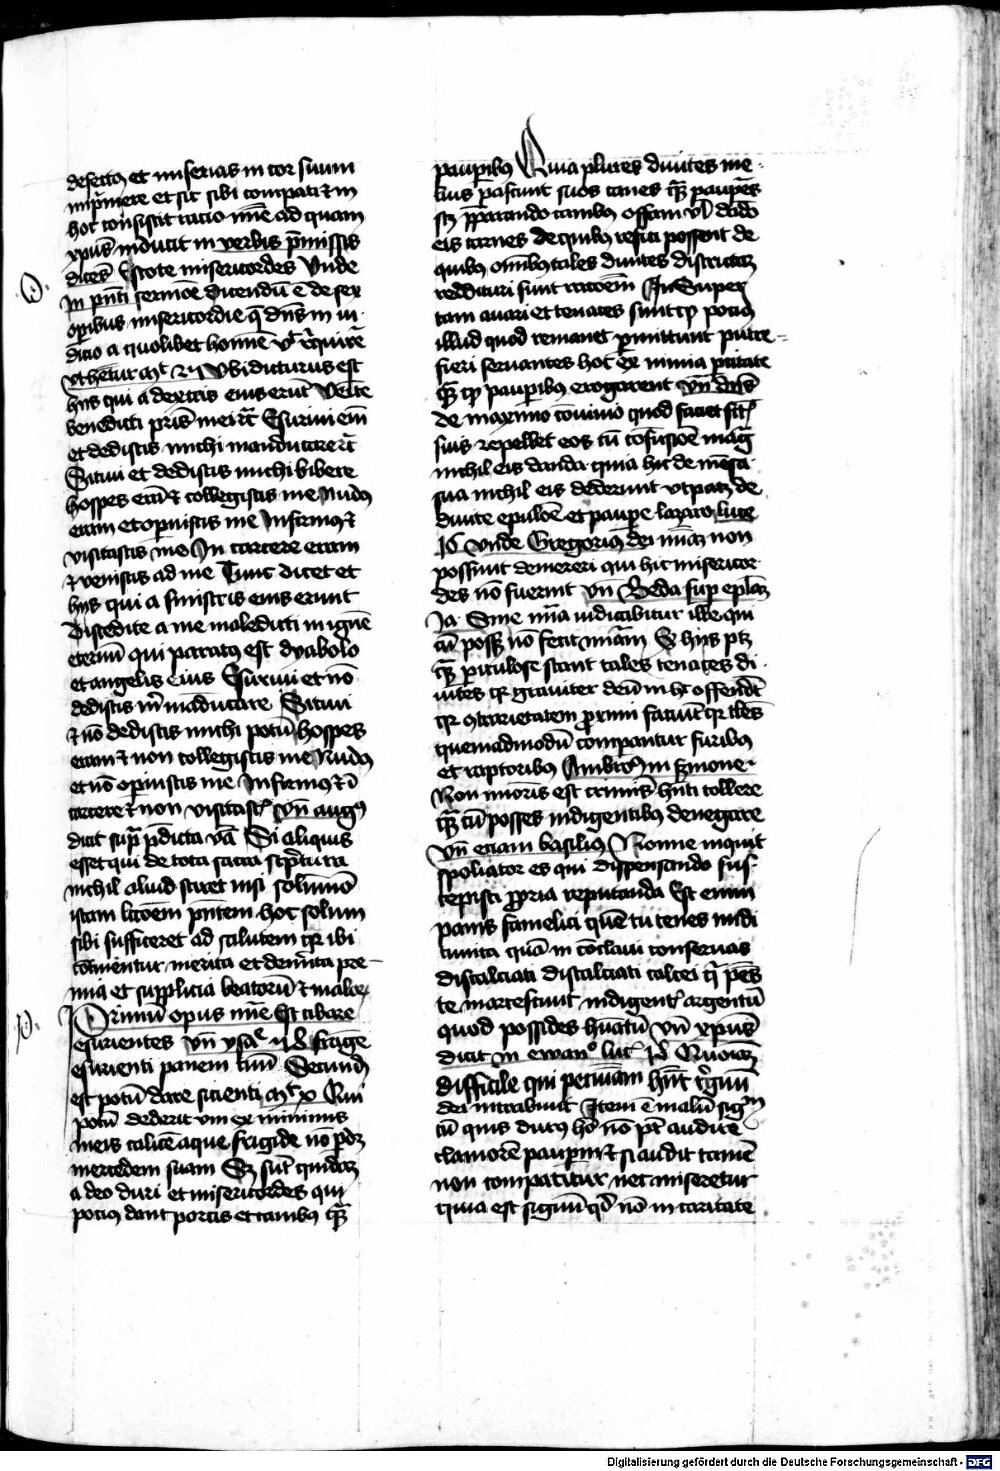 defectus et miserias in cor suum
imprimere et sic sibi compati et in
hoc consistit racio mie ad quam
xpus inducit in verbis pmissis
dicens Estote misericordes Unde
In pnti sermone dicendum e de sex
operibus misericordie que dns in iu
dicio a quolibet homine vlt requirere
vt hetur mt 25 Ubi dicturus est
hijs qui a dextris eius erunt Venite
benedicti pris mei rc Esuriui em
et dedistis michi manducare rc
Sitiui et dedistis michi bibere
hospes eram et collegistis me Nudus
eram et operuistis me Infirmus et
visitastis me In carcere eram
et venistis ad me Tunc dicet et
hijs qui a sinistris eius erunt
Discedite a me maledicti in ignem
eternum qui paratus est dyabolo
et angelis eius Esuriui et non
dedistis mi manducare Sitiui
et non dedistis michi potum hospes
eram et non collegistis me Nudus
et non operuistis me Infirmus et in
carcere et non visitastis vn augus
dicit supra pdicta vba Si aliquis
esset qui de tota sacra scriptura
nichil aliud sciret nisi solummodo
istam leccoem pntem hoc solum
sibi sufficeret ad salutem quia ibi
continentur merita et demerita pre-
mia et supplicia beatorum et malorum
Primum opus mie Est cibare
esurientes vn ysae 58 frange
esurienti panem tuum Secundum
est potum dare sicienti mt x Qui
potum dederit vni ex minimis
meis calicem aque frigide non perdet
mercedem suam Sed sunt quidam
a deo duri et misericordes qui
pocius dant porcis et canibus quam
pauperibus Quia plures diuites me-
lius pascunt suos canes quam pauperes
scz preparando canibus offam vel dando
eis carnes de quibus refici possent de
quibus omnibus tales diuites districtam
reddituri sunt racoem Insuper
tam auari et tenaces sunt quod pocius
illud quod remanet permittunt putre-
fieri seruantes hoc ex nimia parcitate
quam quod pauperibus erogarent vn dns
de maximo conuiuio quod faciet sanctis
suis repellet eos cum confusione magna
nichil eis danda quia hic de mensa
sua nichil eis dederunt vt patet de
diuite epulone et paupere lazaro luce
16 Unde Gregorius dei miam non
possunt demereri qui hic misericor
des non fuerint vn Beda super eplam
Ja Sine mia iudicabitur ille qui
cum posset non fecit miam Ex hijs patet
quam periculose stant tales tenaces di-
uites quia grauiter deum in hoc offendunt
quia contrarietatem proximi faciunt quia tales
quemadmodum comparantur furibus
et raptoribus Ambrosius in sermone
Non minoris est criminis habenti tollere
quam cum posses indigentibus denegare
vn etiam basilius Nonne inquit
spoliator es qui dispensando sus-
cepisti propria reputanda Est enim
panis famelici quem tu tenes nudi
tunica quam in conclaui conseruas
discalciati discalciati calcei qui penes
te marcescunt indigentis argentum
quod possides humatum vn xpus
dicit in ewango luc 18 Quoniam
difficile qui pecuniam habent regnum
dei intrabunt Item e malum signum
cum quis diues homo non potest audire
clamorem pauperum et si audit tamen
non compatitur nec miseretur
quia est signum quod non in caritate
Digitalisierung gefördert durch die Deutsche Forschungsgemeinschaft - DFG